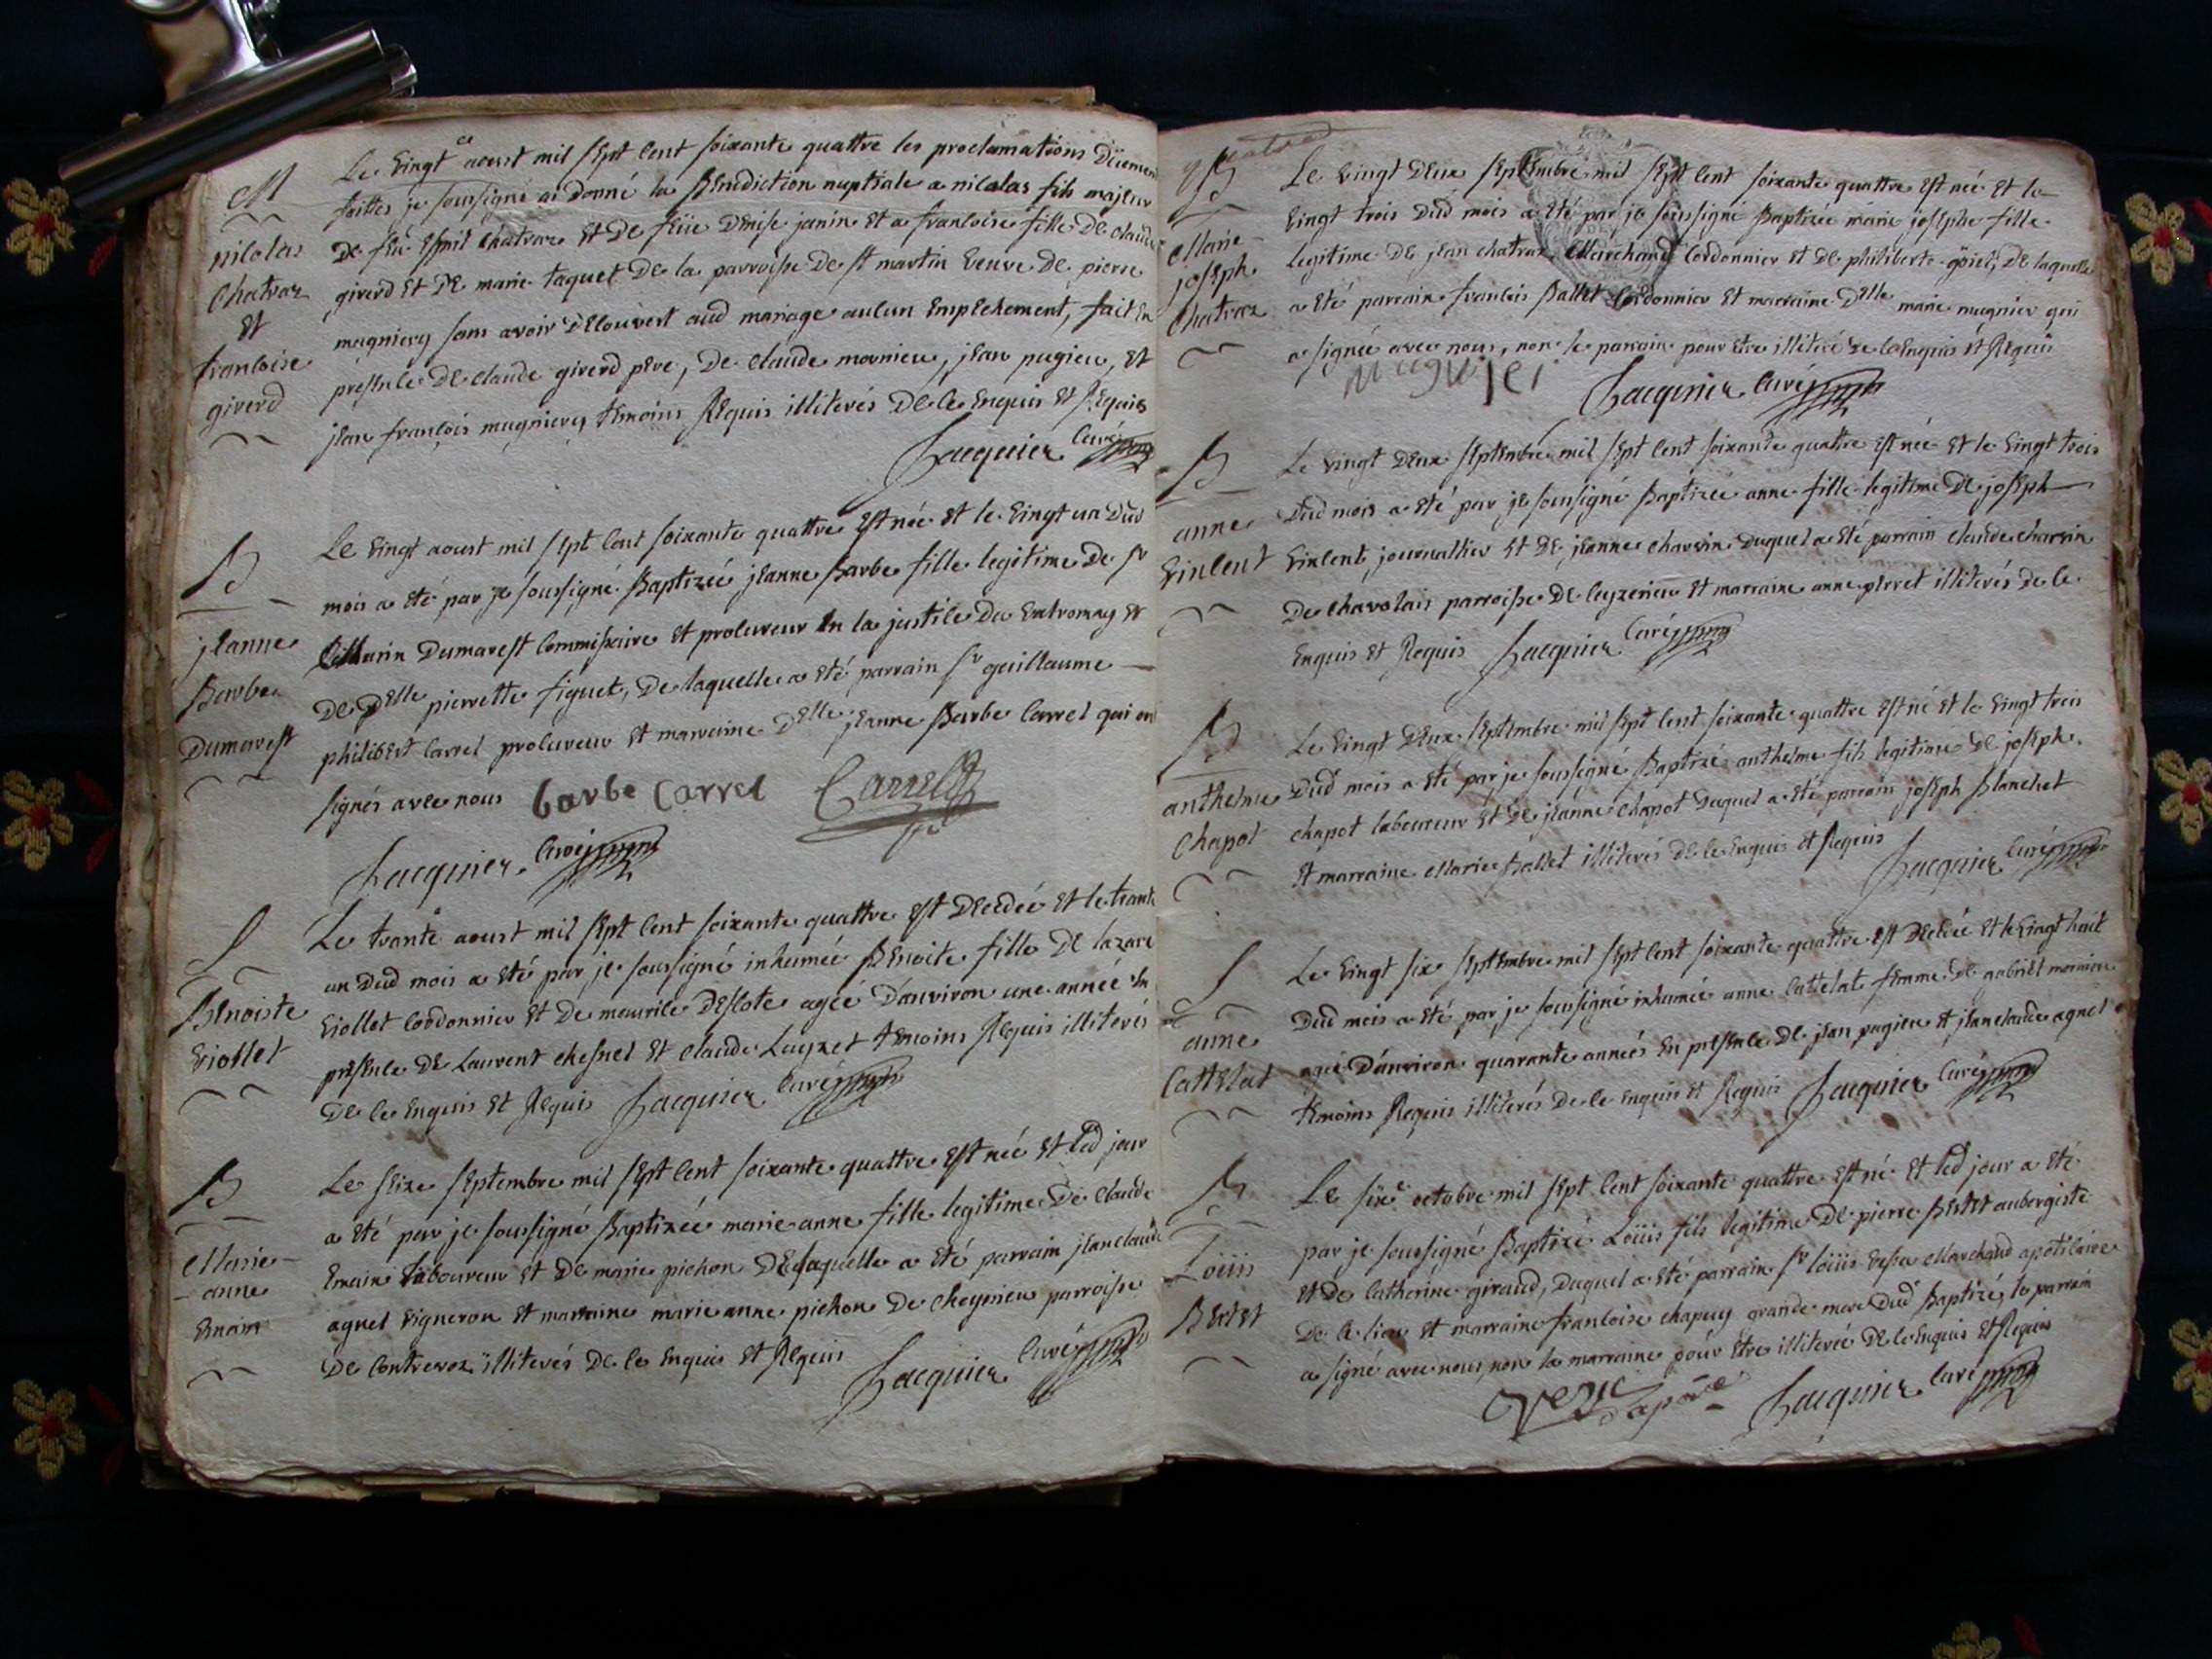 M
nicolas
Chatraz
Et
francoise
giverd
Le Vingt aoust mil sept cent soixante quattre les proclamations Düement
faittes je soussigné ai donné la Benediction nuptiale a nicolas fils majeur
De feü Esprit Chatraz Et De feüe Denise janin Et a francoise fille De claude
giverd Et De marie taquet De la parroisse De st martin Veuve De pierre
magnieny sans avoir Decouvert aud mariage aucun Empechement, fait En
presence De claude giverd pere, De claude mornieu, jean pugieu, Et
jean françois magnieny temoins Requis illiterés De ce Enquis Et Requis
Jacquier Curé
B
jeanne
Barbe
Dumarest
Le Vingt aoust mil sept cent soixante quattre Est née Et le Vingt un Dud
mois a eté par je soussigné Baptizeé jeanne Barbe fille legitime De sr
Dumarest Commissaire Et procureur En la justice Du Valromay Et
De Delle pierrette figuet, De laquelle a eté parrain sr guillaume
philibert Carrel procureur Et marraine Delle jeanne Barbe Carrel qui ont
signés avec nous barbe Carrel Carrel
Jacquier Curé
S
Benoiste
Viollet
Le trante aoust mil sept cent soixante quattre Est Decedeé Et le trante
un Dud mois a eté par je soussigné inhumeé Benoite fille De lazare
Viollet Cordonnier Et De maurice Descote ageé D'anviron une année En
presence De Laurent chesnel Et claude Luyzet temoins Requis illiterés
De ce Enquis Et Requis Jacquier Curé
B
Marie
anne
Emain
Le seize septembre mil sept cent soixante quattre Est née Et led jour
a eté par je soussigné Baptizeé marie anne fille legitime De claude
Emain laboureur Et De marie pichon De laquelle a eté parrain jean claude
agnel Vigneron Et marraine marie anne pichon De cheyrieu parroisse
De Contrevoz illiterés De ce Enquis Et Requis
Jacquier Curé
B
Marie
joseph
Chatraz
Le Vingt Deux septembre mil sept cent soixante quattre Est née Et le
Vingt trois Dud mois a eté par je soussigné Baptizeé marie josephe fille
legitime De jean chatraz Marchand Cordonnier Et De philiberte goiet, De laquelle
a eté parrain francois Ballet Cordonnier Et marraine Delle marie magnier qui
a signeé avec nous, non le parrain pour Etre illiteré De ce Enquis Et Requis
Magnier
Jacquier Curé
B
anne
Vincent
Le Vingt Deux septembre mil sept cent soixante quattre Est née Et le Vingt trois
Dud mois a eté par je soussigné Baptizeé anne fille legitime De joseph
Vincent journallier Et De jeanne charvin Duquel a eté parrain claude charvin
De chavolais parroisse De Ceyzerieu Et marraine anne perret illiterés De ce
Enquis Et Requis Jacquier Curé
B
anthelme
Chapot
Le Vingt Deux septembre mil sept cent soixante quattre Est né Et le Vingt trois
Dud mois a eté par je soussigné Baptizé anthelme fils legitime De joseph
chapot laboureur Et De jeanne chapot Duquel a eté parrain joseph Blanchet
Et marraine Marie Ballet illiterés De ce Enquis Et Requis
Jacquier Curé
S
anne
Cattelat
Le Vingt six septembre mil sept cent soixante quattre Est Decedeé Et le Vingt huit
Dud mois a eté par je soussigné inhumeé anne Cattelat femme De gabriel mornieu
ageé D'anviron quarante annees En presence De jean pugieu Et jean claude agnel
temoins Requis illiterés De ce Enquis Et Requis Jacquier Curé
B
Loüis
Bertet
Le six octobre mil sept cent soixante quattre Est né Et led jour a eté
par je soussigné Baptizé Loüis fils legitime De pierre Bertet aubergiste
Et De Catherine giraud, Duquel a eté parrain sr loüis Marchand apoticaire
De ce lieu Et marraine francoise chapuy grande mere Dud Baptizé, le parrain
a signé avec nous, non la marraine pour Etre illitereé De ce Enquis Et Requis
Jacquier Curé